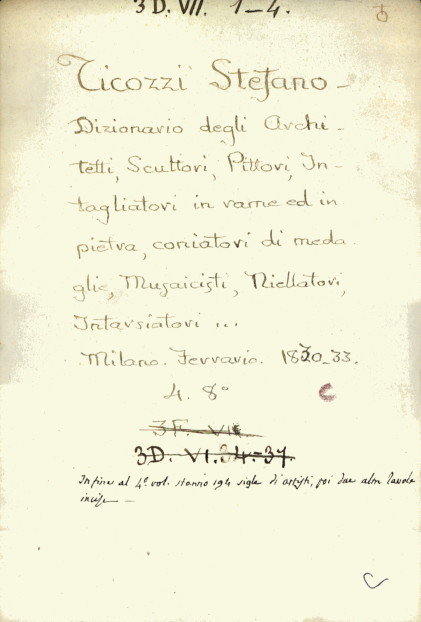 3D. VII. 1-4.
Ticozzi Stefano -
Dizionario degli Archi-
tetti, Scultori, Pittori, In-
tagliatori in rame ed in
pietra, coniatori di meda
glie, Musaicisti, Niellatori,
Intarsiatori ...
Milano. Ferrario. 1830-33.
4. 8°
C
3F. VII.
3D. VI. 34.-37.
In fine al 4° vol. stanno 194 sigle di artisti, poi due altre Tavole
incise -
C